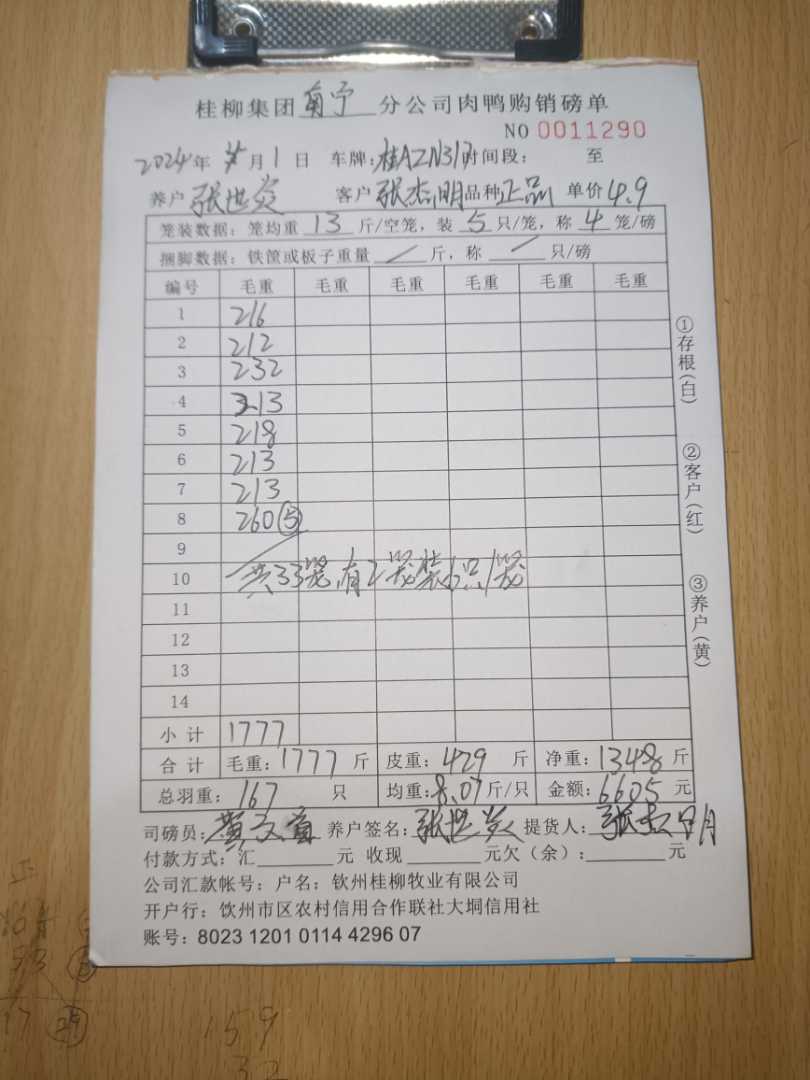 桂柳集团南宁分公司肉鸭购销磅单
NO 0011290
2024年 月1日 车牌:桂AZN317 时间段: 至
养户张世炎 客户张杰明 品种正品 单价4.9
笼装数据: 笼均重 13 斤/空笼, 装 5 只/笼, 称 4 笼/磅
捆脚数据: 铁筐或板子重量 / 斤, 称 / 只/磅
编号 毛重 毛重 毛重 毛重 毛重 毛重
1 216
2 212
3 232
4 213
5 218
6 213
7 213
8 260⑤
9
10 共33笼,有2笼装6只/笼
11
12
13
14
小计 1777
合计 毛重:1777斤 皮重:429斤 净重:1348斤
总羽重:167只 均重:8.07斤/只 金额:6605元
司磅员: 黄文 养户签名:张世炎 提货人:张杰明
付款方式:汇 元 收现 元欠(余): 元
公司汇款帐号: 户名: 钦州桂柳牧业有限公司
开户行: 饮州市区农村信用合作联社大垌信用社
账号: 8023 1201 0114 4296 07
①存根(白)
②客户(红)
③养户(黄)
159
32